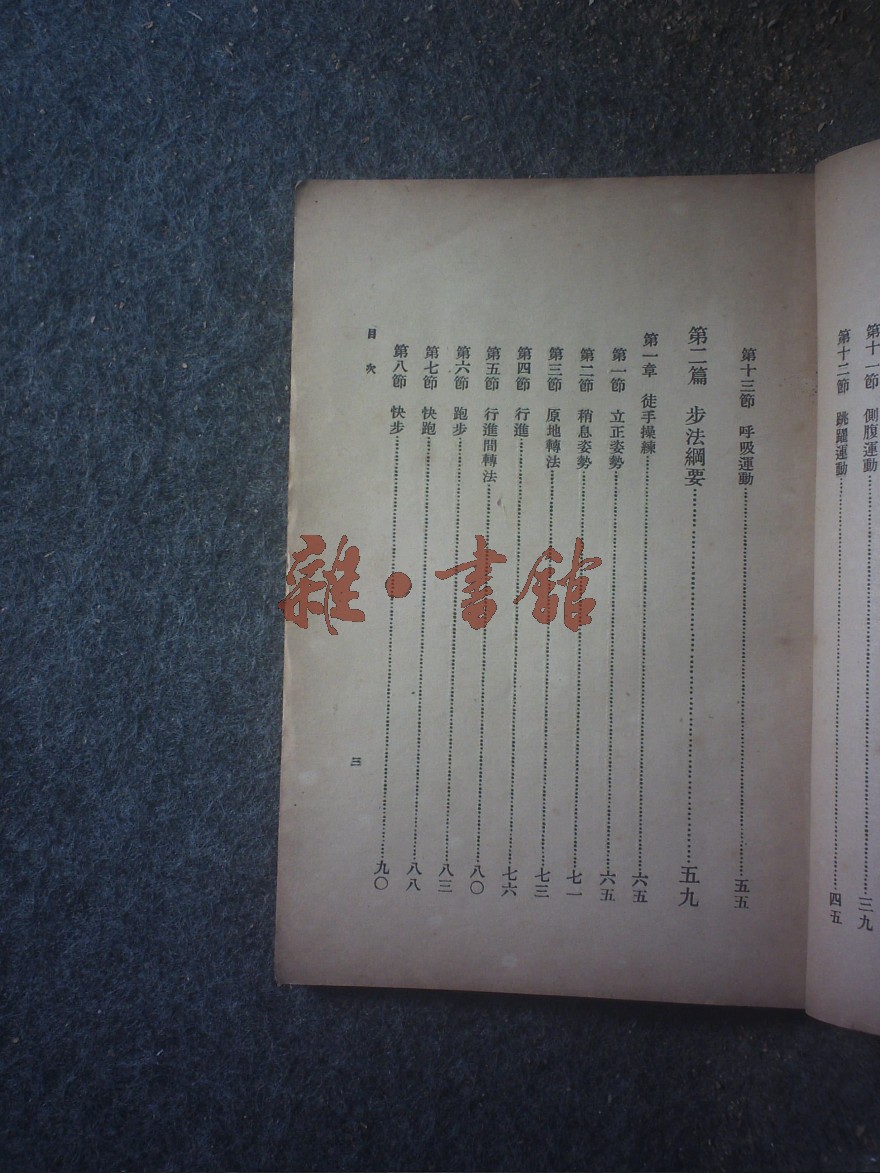 第十一節　側腹運動……三九
第十二節　跳躍運動……四五
第十三節　呼吸運動……五五
第二篇　步法綱要……五九
第一章　徒手操練……六五
第一節　立正姿勢……六五
第二節　稍息姿勢……七一
第三節　原地轉法……七三
第四節　行進……七六
第五節　行進間轉法……八〇
第六節　跑步……八三
第七節　快跑……八八
第八節　快步……九〇
目次
三
雜·書館